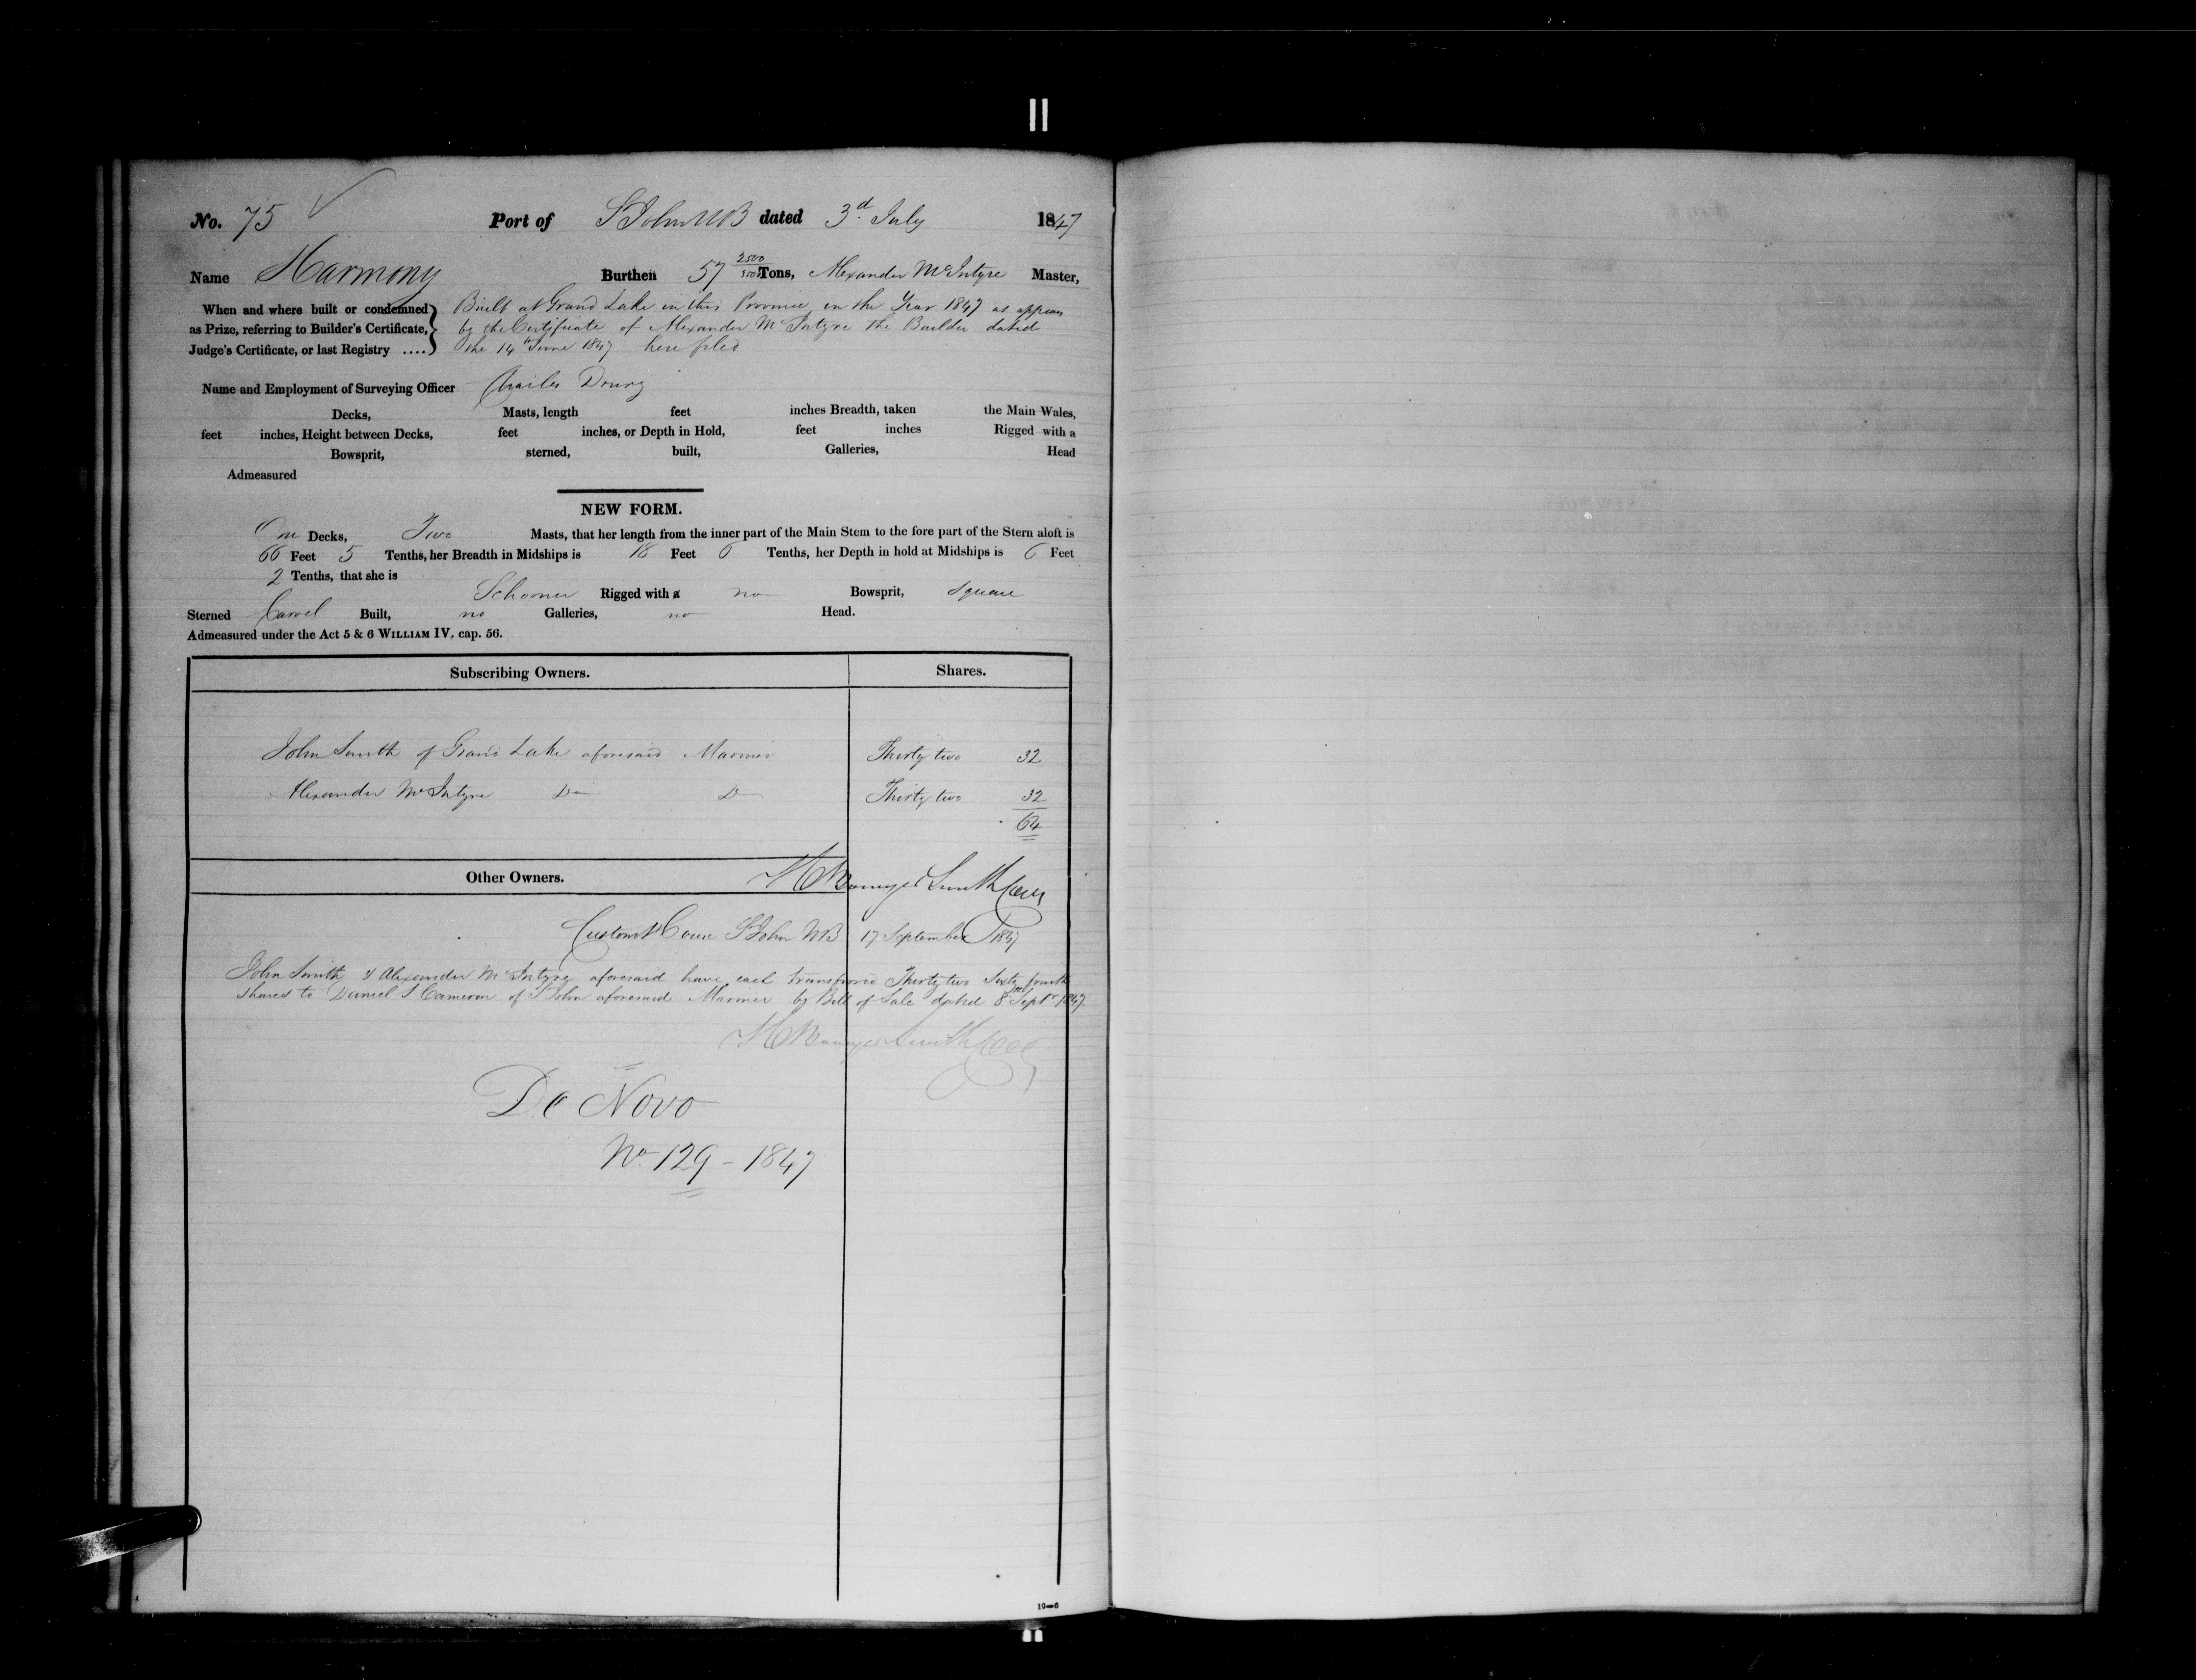 No. 75 Port of St John NB dated 3d. July 1847
Name Harmony Burthen 57 2500/3500 Tons, Alexander McIntyre Master,
When and where built or condemned as Prize, referring to Builder's Certificate, Judge's Certificate, or last Registry ....}
Built at Grand Lake in this Province in the Year 1847 as appears
by the Certificate of Alexander McIntyre the Builder dated
the 14th June 1847 here filed
Name and Employment of Surveying Officer Charles Drury
Decks, Masts, length feet inches Breadth, taken the Main Wales,
feet inches, Height between Decks, feet inches, or Depth in Hold, feet inches Rigged with a
Bowsprit, sterned, built, Galleries, Head
Admeasured
NEW FORM.
One Decks, Two Masts, that her length from the inner part of the Main Stem to the fore part of the Stern aloft is
66 Feet 5 Tenths, her Breadth in Midships is 18 Feet 6 Tenths, her Depth in hold at Midships is 6 Feet
2 Tenths, that she is
Schooner Rigged with a no Bowsprit, Square
Sterned Carvel Built, no Galleries, no Head.
Admeasured under the Act 5 & 6 WILLIAM IV. cap. 56.
Subscribing Owners. Shares.
John Smith of Grand Lake aforesaid Mariner Thirty two 32
Alexander McIntyre Do Do Thirty two 32
64
Other Owners.
Smith
Custom House St John NB 17 September 1847
John Smith & Alexander McIntyre aforesaid have each transferred Thirty two Sixty fourth
shares to Daniel S Cameron of St John aforesaid Mariner by Bill of Sale dated 8th Septr 1847.
Smith
De Novo
No. 129 - 1847
10—6